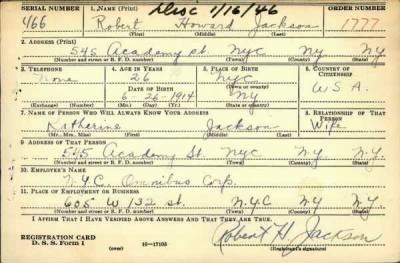 Disc 1/16/46
SERIAL NUMBER 1. NAME (Print) ORDER NUMBER
466 Robert Howard Jackson 1777
(First) (Middle) (Last)
2. ADDRESS (Print)
545 Academy St. NYC NY NY
(Number and street or R. F. D. number) (Town) (County) (State)
3. TELEPHONE 4. AGE IN YEARS 5. PLACE OF BIRTH 6. COUNTRY OF CITIZENSHIP
None 26 NYC
DATE OF BIRTH (Town or county)
6 - 26 - 1914 NY USA.
(Exchange) (Number) (Mo.) (Day) (Yr.) (State or country)
7. NAME OF PERSON WHO WILL ALWAYS KNOW YOUR ADDRESS 8. RELATIONSHIP OF THAT PERSON
Katherine Jackson Wife
(Mr., Mrs., Miss) (First) (Middle) (Last)
9. ADDRESS OF THAT PERSON
545 Academy St. NYC N.Y. N.Y.
(Number and street or R. F. D. number) (Town) (County) (State)
10. EMPLOYER'S NAME
N.Y.C. Omnibus Corp.
11. PLACE OF EMPLOYMENT OR BUSINESS
605 W 132 st. N.Y.C NY N.Y.
(Number and street or R. F. D. number) (Town) (County) (State)
I AFFIRM THAT I HAVE VERIFIED ABOVE ANSWERS AND THAT THEY ARE TRUE.
REGISTRATION CARD
D. S. S. Form 1 (over) 16-17105 Robert H Jackson
(Registrant's signature)